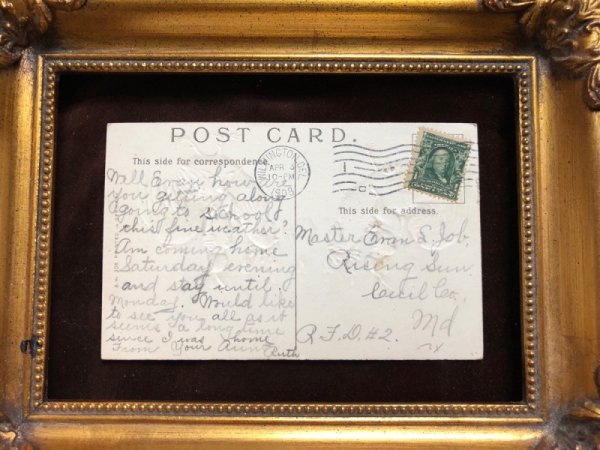 POST CARD.
This side for correspondence.
WILMINGTON, DEL.
APR
10-PM
1908
This side for address.
Well Evan how are
you getting along
going to school
this fine weather?
Am coming home
Saturday evening
and stay until
Monday. Would like
to see you all as it
seems a long time
since I was home
From Your Aunt
Ruth
Master Evan S. Job,
Rising Sun
Cecil Co,
Md
R.F.D.#2.